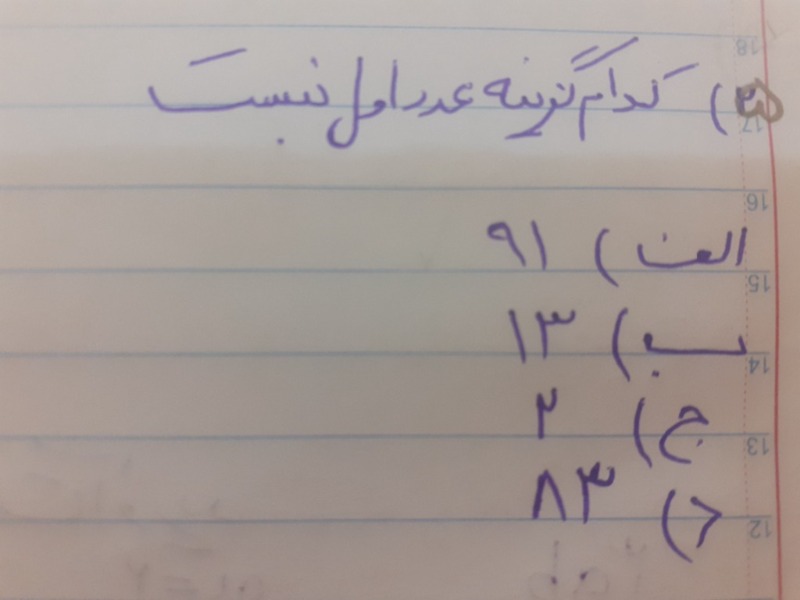 ۲۵) کدام گزینه عدد اول نیست
الف) ۹۱
ب) ۱۳
ج) ۲
د) ۸۳
18
17
16
15
14
13
12